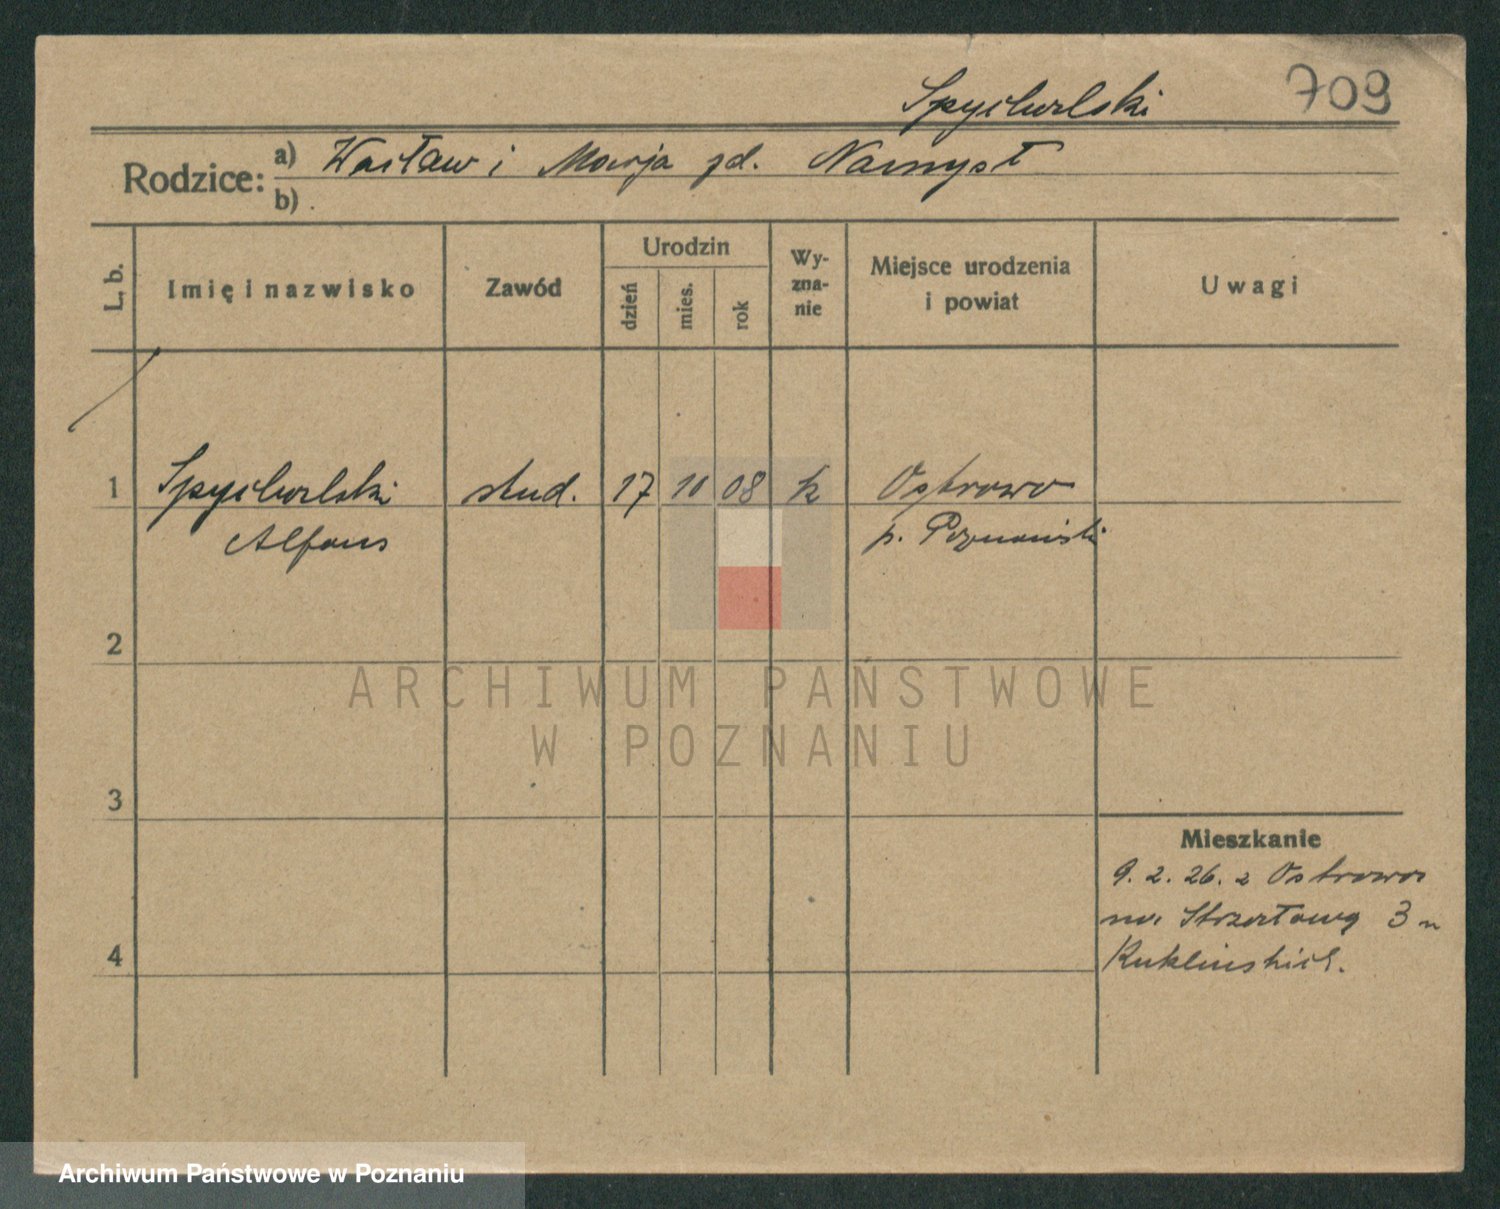 Spychalski 709
Rodzice: a) Wacław i Marja zd. Namysł
b)
L. b.
Imię i nazwisko
Zawód
Urodzin
dzień
mies.
rok
Wy-
zna-
nie
Miejsce urodzenia
i powiat
Uwagi
1 Spychalski stud. 17 10 08 k Ostrowo
Alfons p. Poznański
2
3
4
Mieszkanie
9. 2. 26. z Ostrowa
na Strzałową 3 u
Kuklińskich.
ARCHIWUM PAŃSTWOWE
W POZNANIU
Archiwum Państwowe w Poznaniu